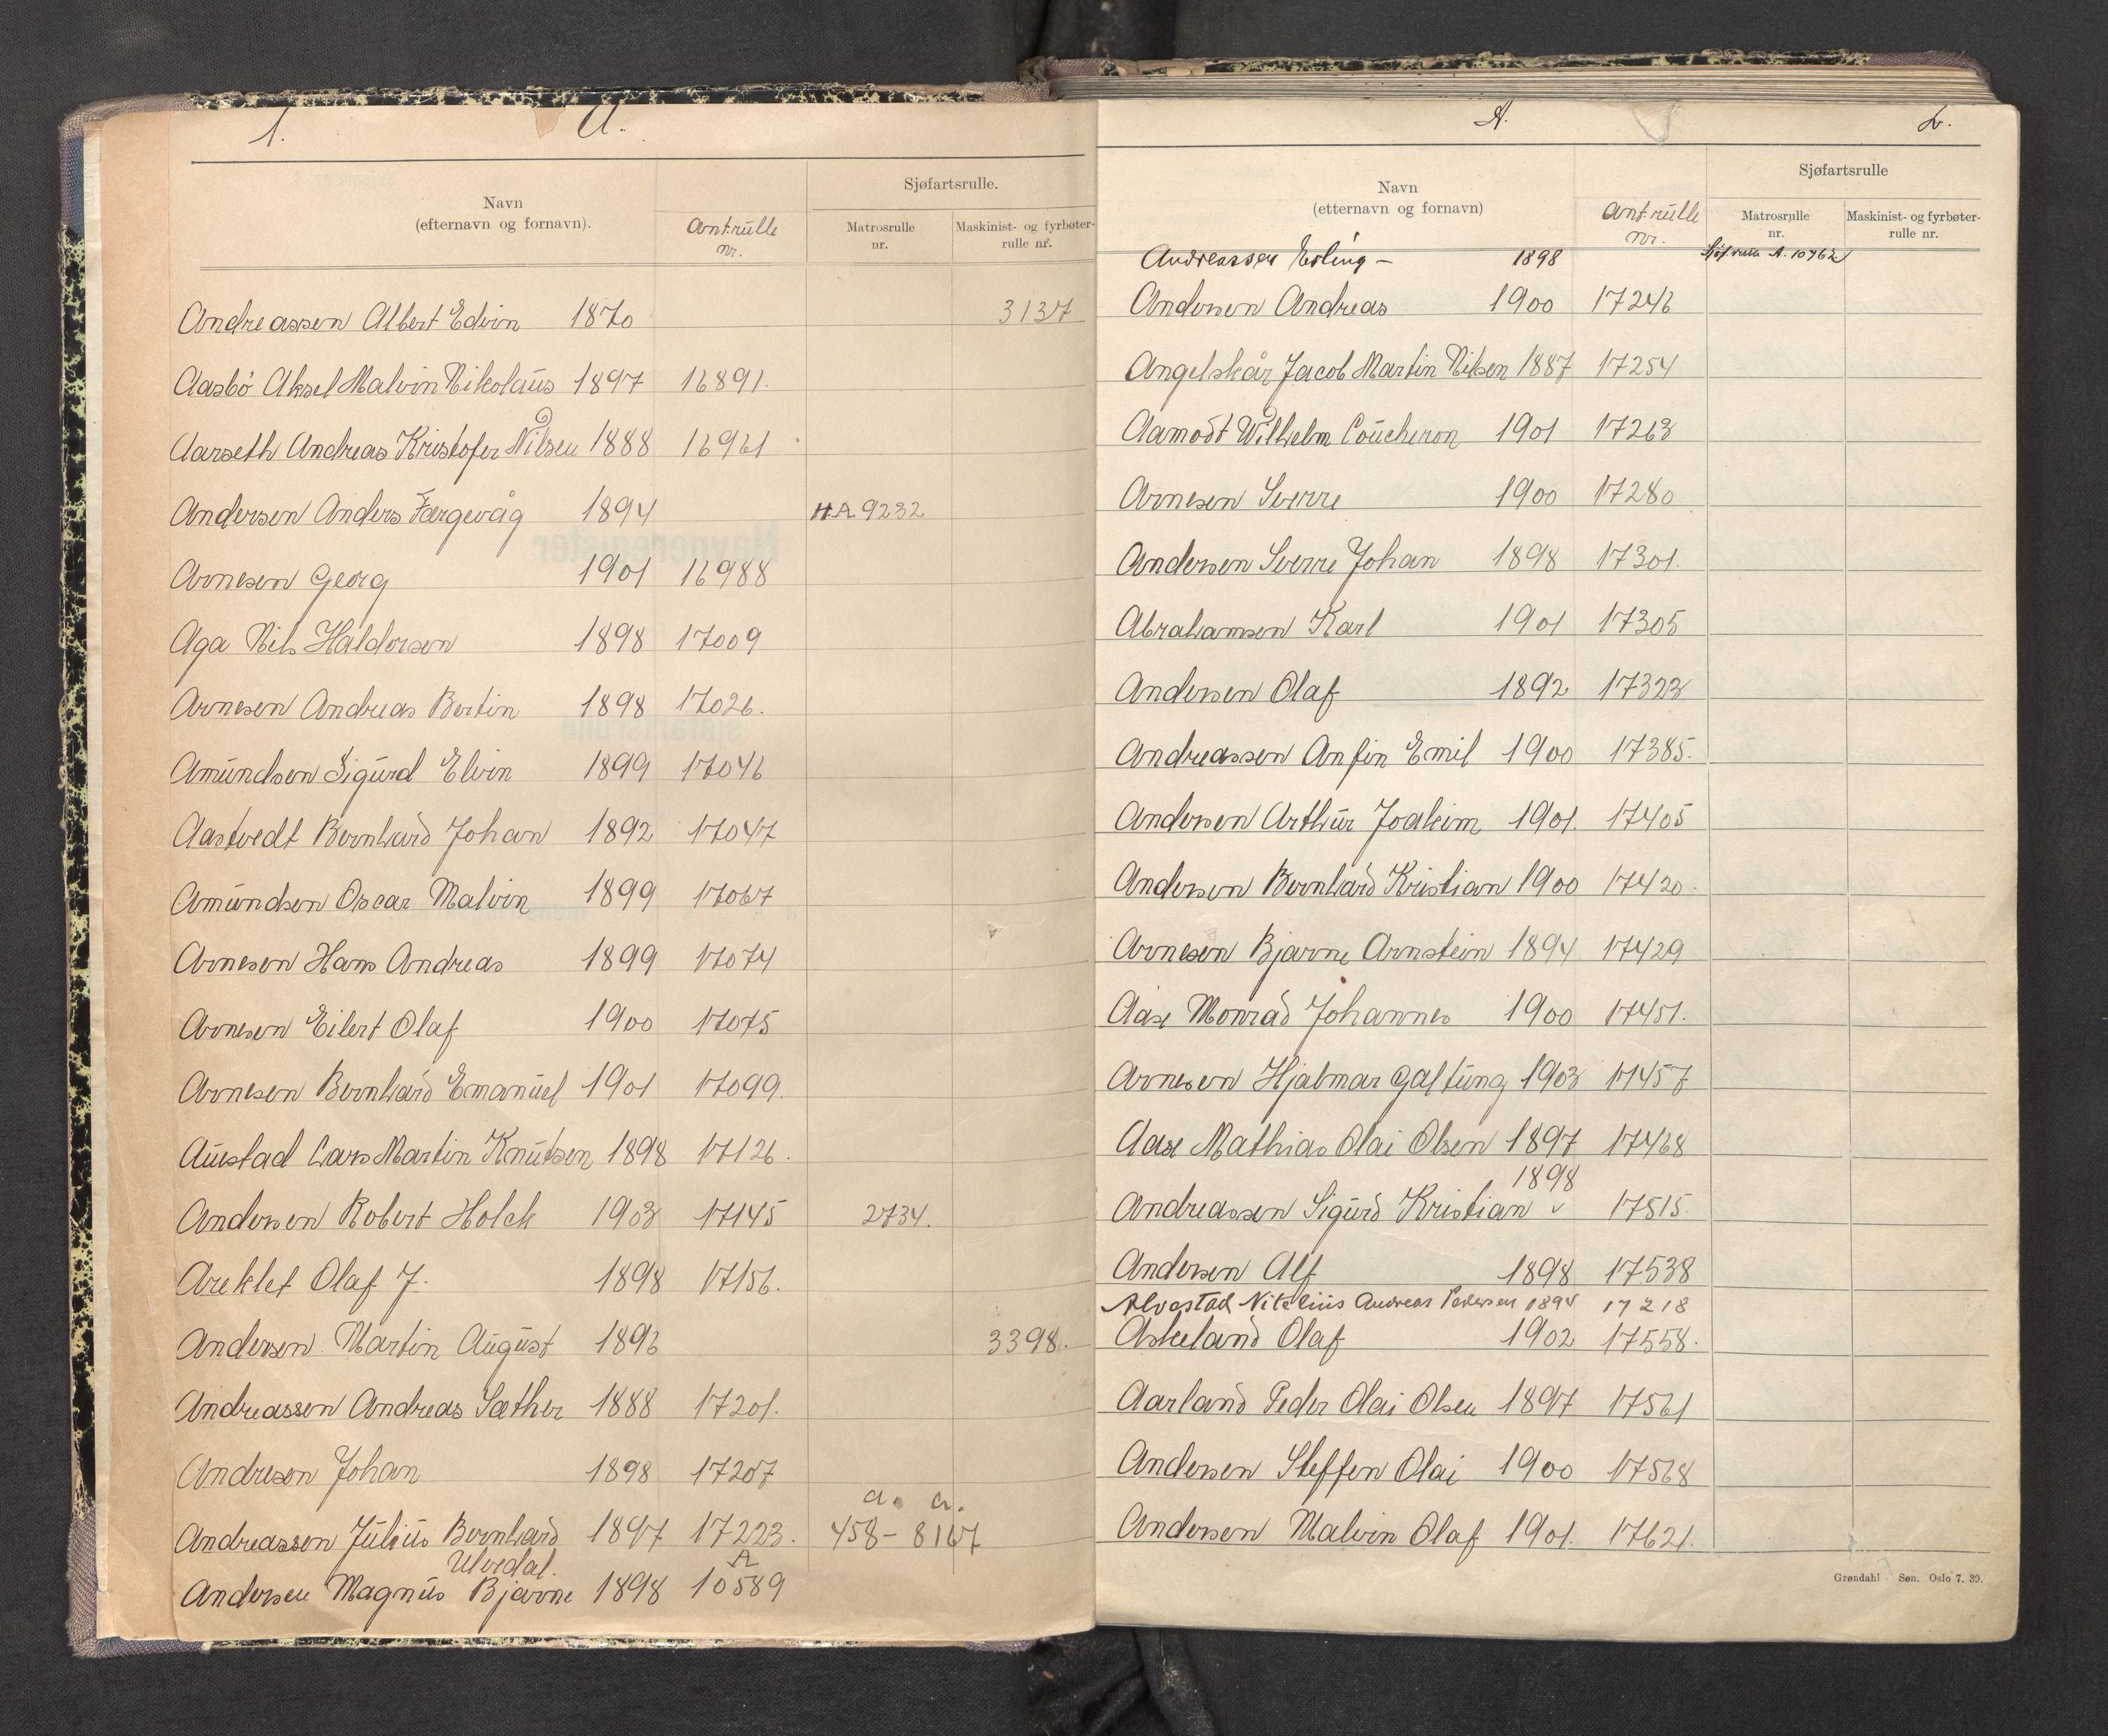 1. A.
Sjøfartsrulle.
Navn
(efternavn og fornavn).
Antrulle
nr.
Matrosrulle
nr.
Maskinist- og fyrbøter-
rulle nr.
Andreassen Albert Edvin 1870 3137
Aasbö Aksel Malvin Nikolaus 1897 16891.
Aarseth Andreas Kristofer Nilsen 1888 16961
Andersen Anders Færgevåg 1894 H.A 9232
Arnesen Georg 1901 16988
Aga Nils Haldorsen 1898 17009
Arnesen Andreas Bertin 1898 17026.
Amundsen Sigurd Elvin 1899 17046
Aastvedt Bernhard Johan 1892 17047
Amundsen Oscar Malvin 1899 17067
Arnesen Hans Andreas 1899 17074
Arnesen Eilert Olaf 1900 17075
Arnesen Bernhard Emanuel 1901 17099.
Austad Lars Martin Knutsen 1898 17126.
Andersen Robert Holck 1903 17145 2734.
Areklet Olaf J. 1898 17156.
Andersen Martin August 1896 3398.
Andreassen Andreas Sæther 1888 17201.
Andresen Johan 1898 17207
a. a.
Andreassen Julius Bernhard 1897 17223. 458 - 8167
Ulvedal. A
Andersen Magnus Bjarne 1898 10589
A. 2.
Sjøfartsrulle
Navn
(etternavn og fornavn)
Antrulle
nr.
Matrosrulle
nr.
Maskinist- og fyrbøter-
rulle nr.
Andreassen Erling – 1898 A. 10762
Andersen Andreas 1900 17246
Angelskår Jacob Martin Nilsen 1887 17254
Aamodt Wilhelm Coucheron 1901 17263
Arnesen Sverre 1900 17280
Andersen Sverre Johan 1898 17301.
Abrahamsen Karl 1901 17305
Andersen Olaf 1892 17323
Andreassen Anfin Emil 1900 17385.
Andersen Arthur Joakim 1901. 17405
Andersen Bernhard Kristian 1900 17420.
Arnesen Bjarne Arnstein 1894 17429
Aase Monrad Johannes 1900 17451.
Arnesen Hjalmar Galtung 1903 17457
Aase Mathias Olai Olsen 1897 17468
1898
Andreassen Sigurd Kristian v 17515.
Andersen Alf 1898 17538
Alvestad Nikelius Andreas Pedersen 1894 17218
Askeland Olaf 1902 17558.
Aarland Peder Olai Olsen 1897 17561
Andersen Steffen Olai 1900 17568
Andersen Malvin Olaf 1901. 17621.
Grøndahl Søn. Oslo 7. 39.